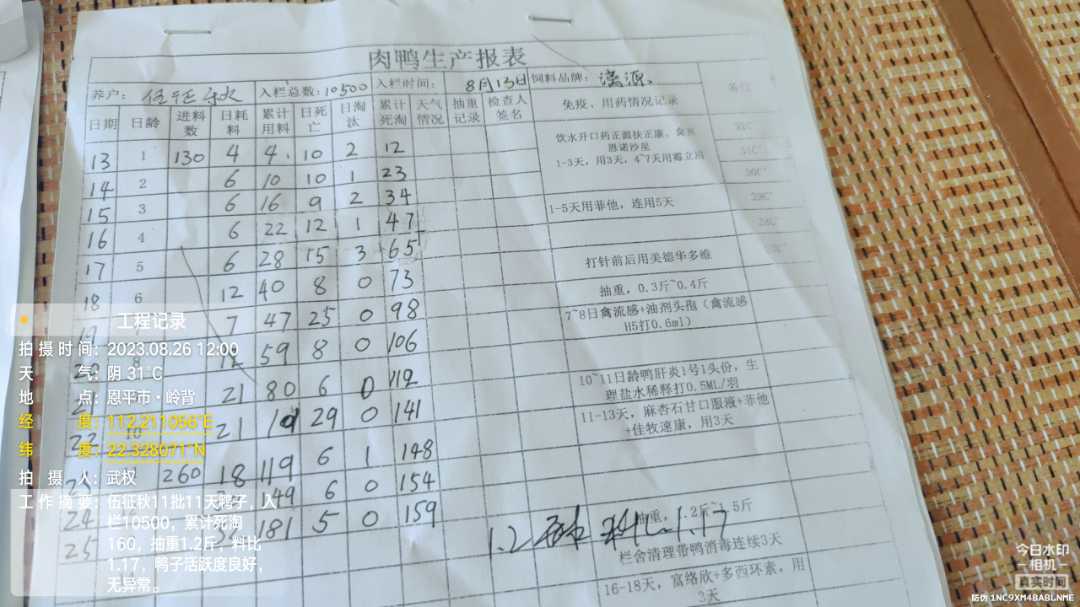 肉鸭生产报表
养户: 伍征秋 入栏总数:10500 入栏时间: 8月13日 饲料品牌: 漓源
日期 日龄 进料数 日耗料 累计用料 日死亡 日淘汰 累计死淘 天气情况 抽重记录 检查人签名 免疫、用药情况记录 备注
13 1 130 4 4 10 2 12
1-3天,用3天,
14 2 6 10 10 1 23
15 3 6 16 9 2 34 1-5天用菲他,连用5天
16 4 6 22 12 1 47
17 5 6 28 15 3 65 打针前后用美德华多维
18 6 12 40 8 0 73 抽重,0.3斤~0.4斤
19 7 47 25 0 98 7~8日禽流感+油剂头孢(禽流感H5打0.6ml)
59 8 0 106
21 80 6 0 112 10~11日龄鸭肝炎1号1头份,生理盐水稀释打0.5ML/羽
22 10 21 29 0 141 11-13天,麻杏石甘口服液+菲他+佳牧速康,用3天
260 18 119 6 1 148
24 149 6 0 154
25 181 5 0 159 抽重,1.2斤~1.5斤
1.2 料比1.17
栏舍清理带鸭消毒连续3天
16-18天,富络欣+多西环素,用3天
工程记录
拍摄时间:2023.08.26 12:00
天气:阴 31℃
地点:恩平市·岭背
经度:112.211056°E
纬度:22.328071°N
拍摄人:武权
工作摘要:伍征秋11批11天鸭子,入
栏10500,累计死淘
160,抽重1.2斤,料比
1.17,鸭子活跃度良好,
无异常。
今日水印
相机
真实时间
防伪 1NC9XM4BABLNME